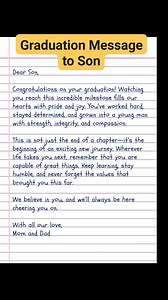 Graduation Message
to Son
Dear Son,
Congratulations on your graduation! Watching
you reach this incredible milestone fills our
hearts with pride and joy. You've worked hard,
stayed determined, and grown into a young man
with strength, integrity, and compassion.
This is not just the end of a chapter—it's the
beginning of an exciting new journey. Wherever
life takes you next, remember that you are
capable of great things. Keep learning, stay
humble, and never forget the values that
brought you this far.
We believe in you, and we'll always be here
cheering you on.
With all our love,
Mom and Dad